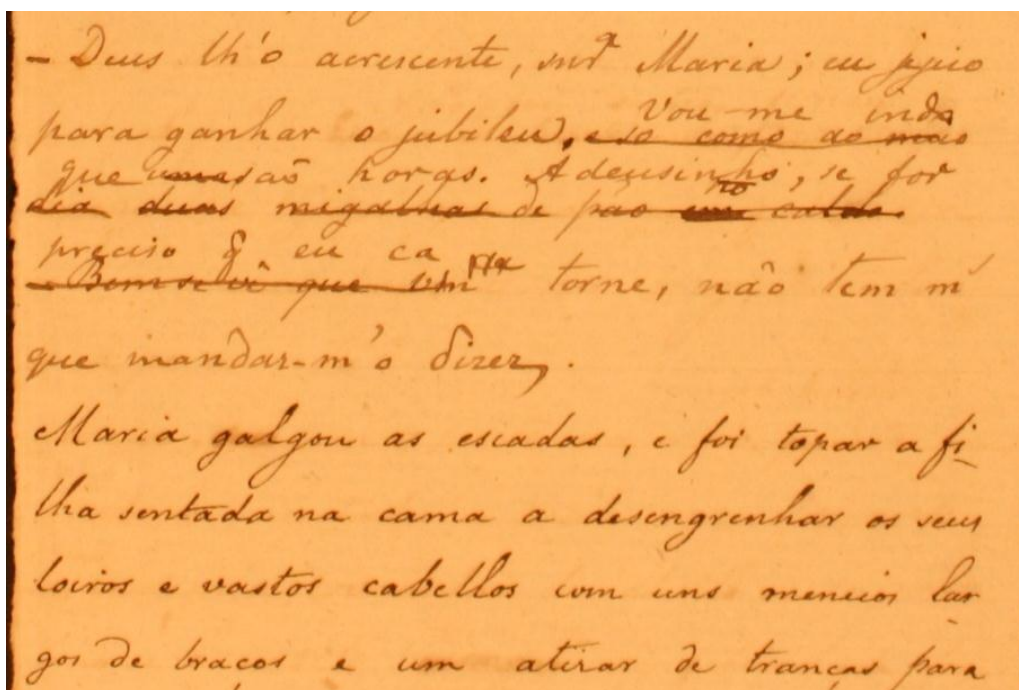 - Deus lh'o acrescente, snrª Maria; eu jejuo
para ganhar o jubileu, e só como ao meio
Vou-me indo
que são horas. Adeusinho, se for
dia duas migalhas de pão no caldo.
preciso q eu ca
- Bem se vê que vm torne, não tem m
que mandar-m'o dizer,.
Maria galgou as escadas, e foi topar a fi-
lha sentada na cama a desengrenhar os seus
loiros e vastos cabellos com uns meneios lar
gos de braços e um atirar de tranças para